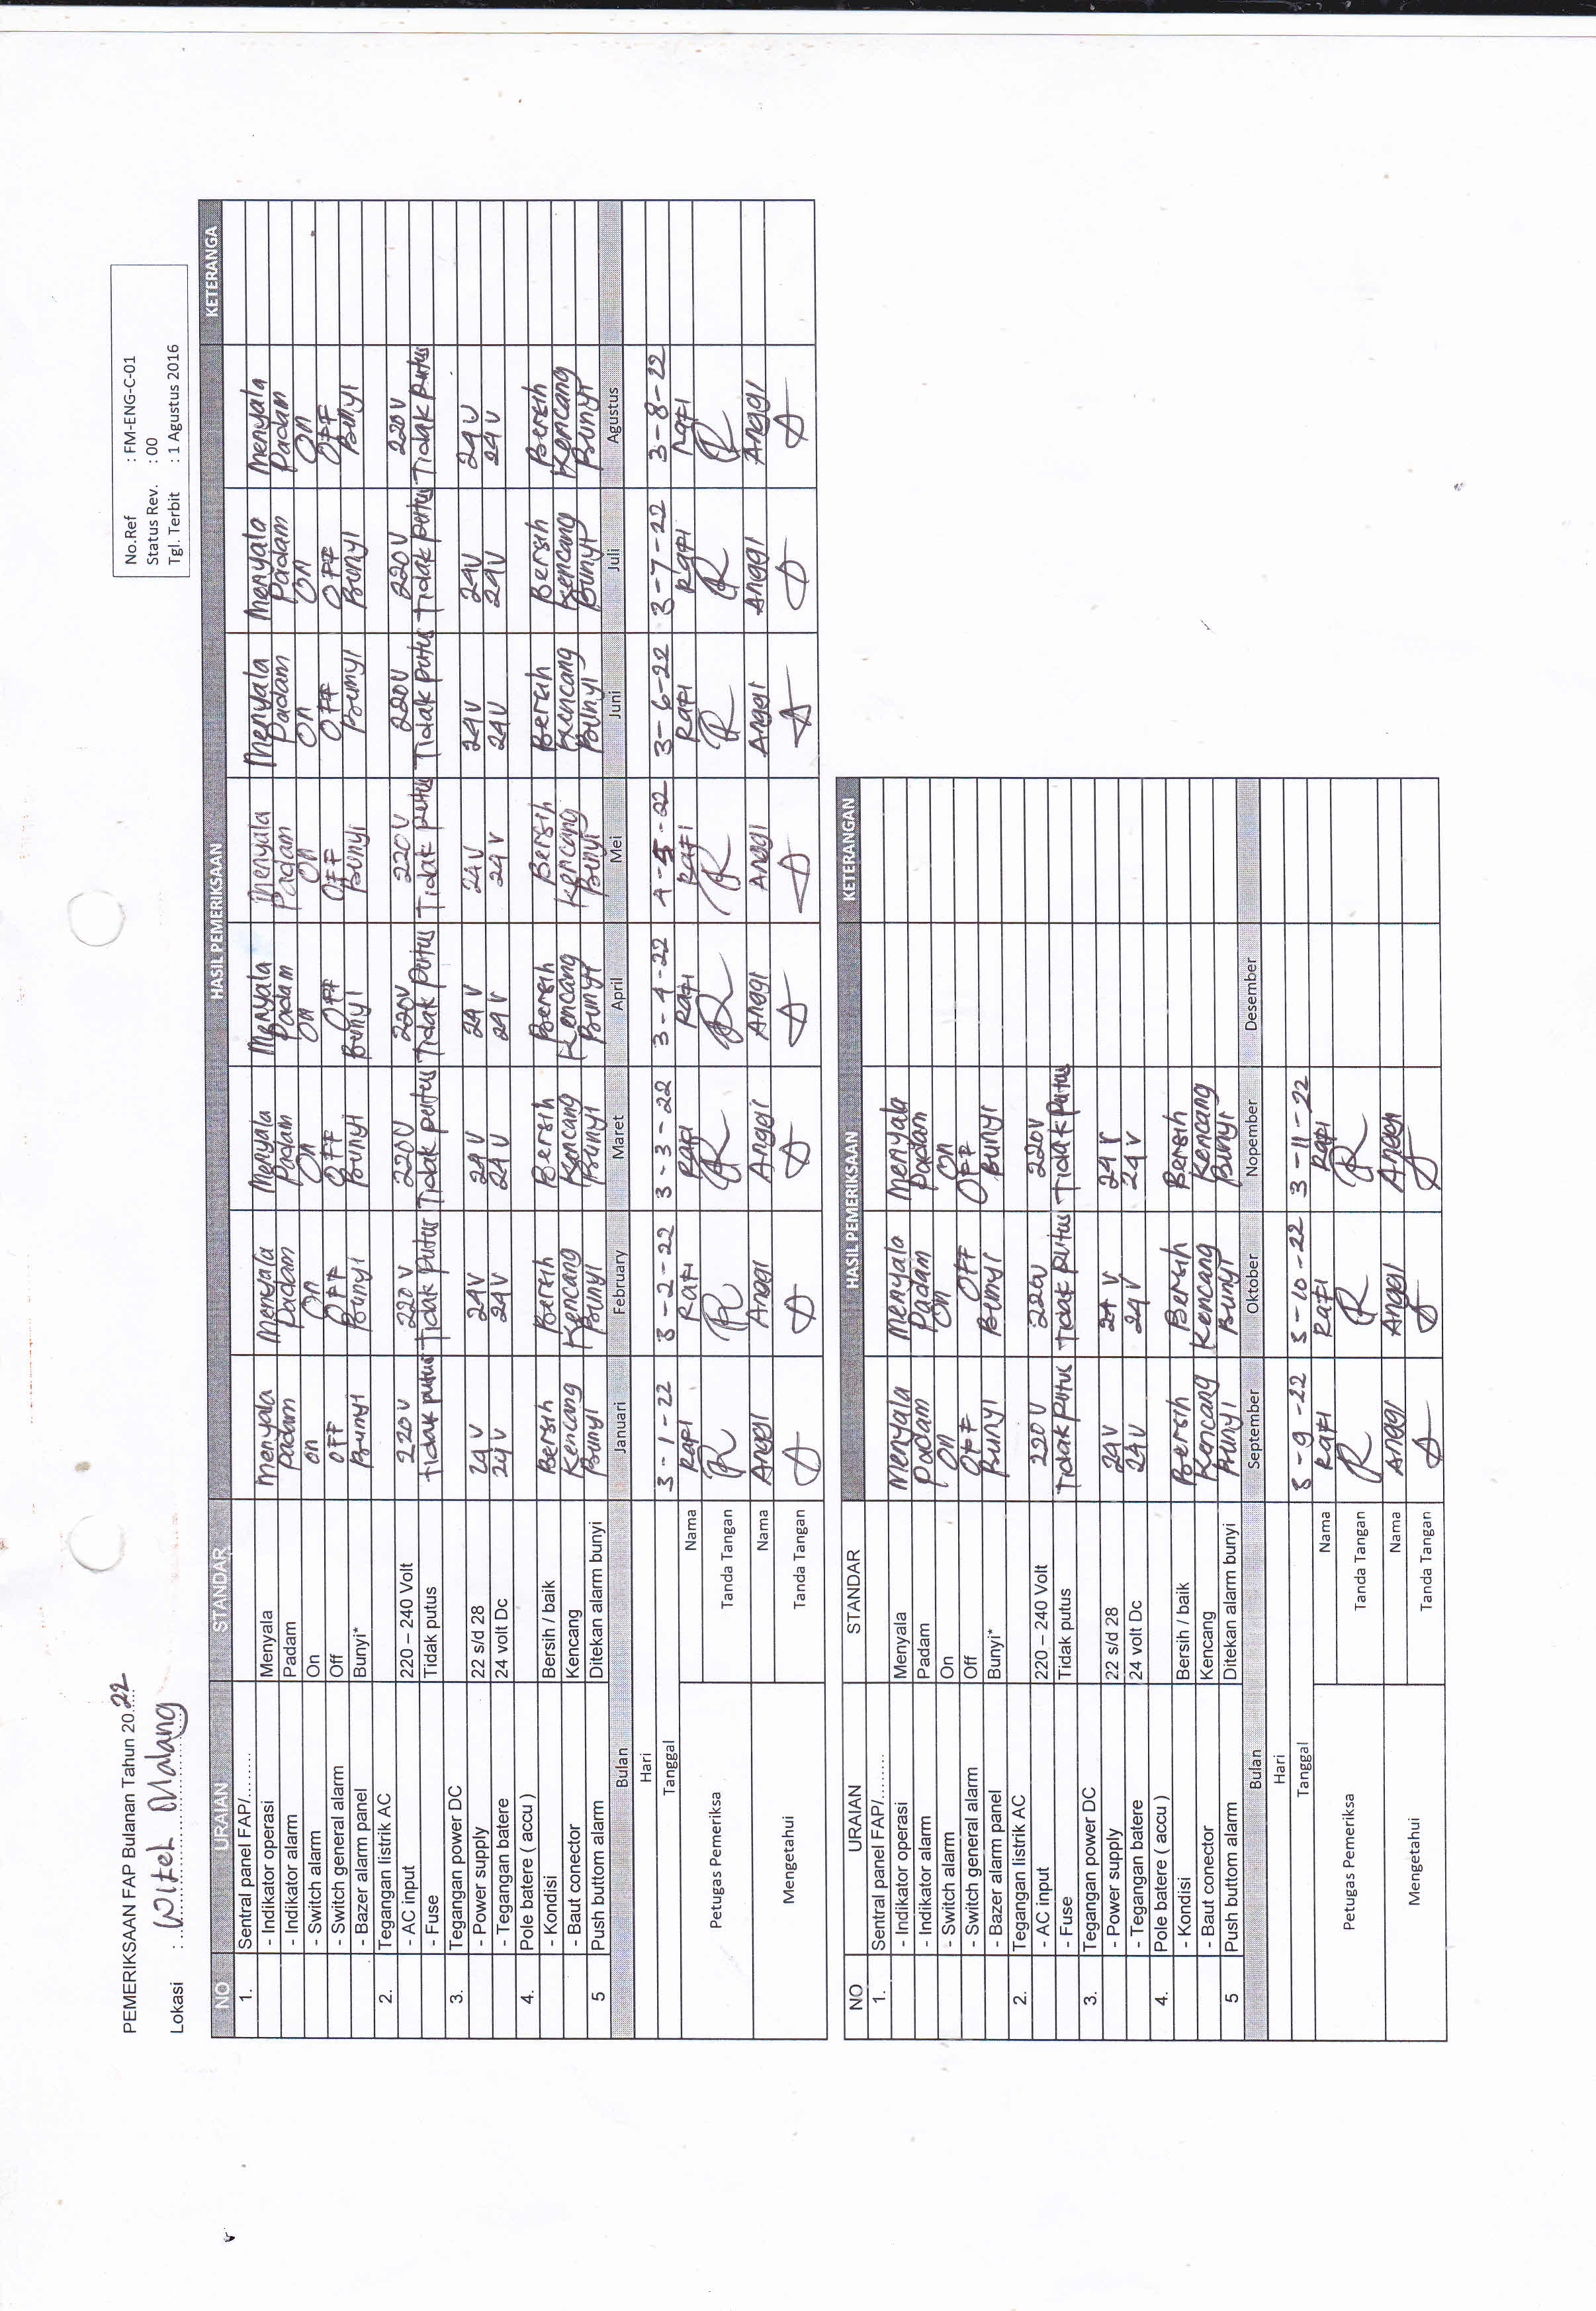 PEMERIKSAAN FAP Bulanan Tahun 20.22
Lokasi : Witel Malang
No.Ref : FM-ENG-C-01
Status Rev. : 00
Tgl. Terbit : 1 Agustus 2016
NO URAIAN STANDAR HASIL PEMERIKSAAN KETERANGA
1. Sentral panel FAP/........
- Indikator operasi Menyala Menyala Menyala Menyala Menyala Menyala Menyala Menyala Menyala
- Indikator alarm Padam Padam Padam Padam Padam Padam Padam Padam Padam
- Switch alarm On On On On On On On On On
- Switch general alarm Off OFF OFF OFF OFF OFF OFF OFF OFF
- Bazer alarm panel Bunyi* Bunyi Bunyi Bunyi Bunyi Bunyi Bunyi Bunyi Bunyi
2. Tegangan listrik AC
- AC input 220 – 240 Volt 220 V 220 V 220V 220V 220V 220V 220V 220V
- Fuse Tidak putus Tidak putus Tidak Putus Tidak putus Tidak Putus Tidak Putus Tidak putus Tidak putus Tidak Putus
3. Tegangan power DC
- Power supply 22 s/d 28 24 V 24V 24 V 24 V 24V 24V 24V 24V
- Tegangan batere 24 volt Dc 24 V 24V 24V 24 V 24 V 24V 24V 24V
4. Pole batere ( accu )
- Kondisi Bersih / baik Bersih Bersih Bersih Bersih Bersih Bersih Bersih Bersih
- Baut conector Kencang Kencang Kencang Kencang Kencang Kencang Kencang Kencang Kencang
5 Push buttom alarm Ditekan alarm bunyi Bunyi Bunyi Bunyi Bunyi Bunyi Bunyi Bunyi Bunyi
Bulan Januari February Maret April Mei Juni Juli Agustus
Hari
Tanggal 3-1-22 3-2-22 3-3-22 3-4-22 4-5-22 3-6-22 3-7-22 3-8-22
Petugas Pemeriksa
Nama Rafi Rafi Rafi Rafi Rafi Rafi Rafi Rafi
Tanda Tangan
Mengetahui
Nama Anggi Anggi Anggi Anggi Anggi Anggi Anggi Anggi
Tanda Tangan
NO URAIAN STANDAR HASIL PEMERIKSAAN KETERANGAN
1. Sentral panel FAP/........
- Indikator operasi Menyala Menyala Menyala Menyala
- Indikator alarm Padam Padam Padam Padam
- Switch alarm On On On On
- Switch general alarm Off OFF OFF OFF
- Bazer alarm panel Bunyi* Bunyi Bunyi Bunyi
2. Tegangan listrik AC
- AC input 220 – 240 Volt 220V 220V 220V
- Fuse Tidak putus Tidak Putus Tidak Putus Tidak Putus
3. Tegangan power DC
- Power supply 22 s/d 28 24V 24 V 24 V
- Tegangan batere 24 volt Dc 24V 24V 24 V
4. Pole batere ( accu )
- Kondisi Bersih / baik Bersih Bersih Bersih
- Baut conector Kencang Kencang Kencang Kencang
5 Push buttom alarm Ditekan alarm bunyi Bunyi Bunyi Bunyi
Bulan September Oktober Nopember Desember
Hari
Tanggal 3-9-22 3-10-22 3-11-22
Petugas Pemeriksa
Nama Rafi Rafi Rafi
Tanda Tangan
Mengetahui
Nama Anggi Anggi Anggi
Tanda Tangan